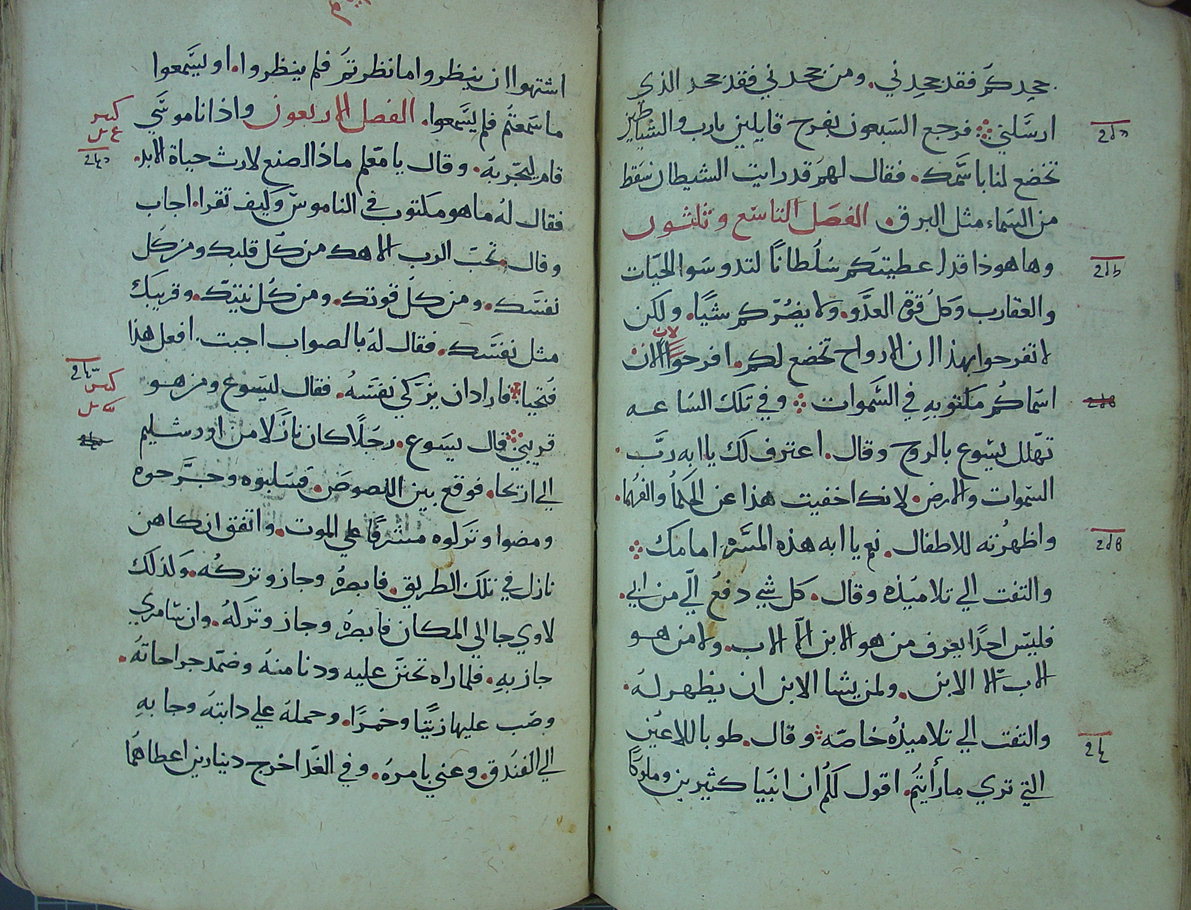 جحدكم فقد جحدني. ومن جحدني فقد جحد الذي
ارسلني فرجع السبعون بفرح قايلين يارب والشياطين
تخضع لنا باسمك. فقال لهم قد رايت الشيطان سقط
من السماء مثل البرق. الفصل التاسع وثلثون
وها هوذا قد اعطيتكم سلطانًا لتدوسوا الحيات
والعقارب وكل قوة العدو. ولا يضركم شيًا. ولكن
لا تفرحوا بهذا ان الارواح تخضع لكم. افرحوا لان
اسماكم مكتوبه في السموات وفي تلك الساعه
تهلل يسوع بالروح وقال. اعترف لك يا ابه رب
السموات والارض. لانك اخفيت هذا عن الحكما والفهما.
واظهرته للاطفال. نعم يا ابه هذه المسره امامك
والتفت الي تلاميذه وقال. كل شي دفع الّي من ابي.
فليس احدًا يعرف من هو الابن الا الاب. ولا من هو
الاب الا الابن. ولمن يشا الابن ان يظهر له.
والتفت الي تلاميذه خاصه وقال. طوبا للاعين
التي تري ما رأيتم. اقول لكم ان انبيا كثيرين وملوكًا
اشتهوا ان ينظروا ما نظرتم فلم ينظروا. او ليسمعوا
ما سمعتم فلم يسمعوا. الفصل الاربعون واذا ناموسّي
قام ليجربه. وقال يا معلم ماذا اصنع لارث حياة الابد.
فقال له ما هو مكتوب في الناموس وكيف تقرا. اجاب
وقال. تحب الرب الاهك من كل قلبك ومن كل
نفسك. ومن كل قوتك. ومن كل نيتك. وقريبك
مثل نفسك. فقال له بالصواب اجبت. افعل هذا
فتحيا فاراد ان يزكي نفسه. فقال ليسوع ومن هو
قريبي قال يسوع. رجلًا كان نازلا من اورشليم
الي اريحا. فوقع بين اللصوص. فسلبوه وجرحوه
ومضوا وتركوه مشرفًا علي الموت. واتفق ان كاهن
نازل في تلك الطريق. فابصره وجاز وتركه. ولذلك
لاوي جا الي المكان فابصره وجاز وتركه. وان سامري
جاز به. فلما راه تحنن عليه ودنا منه وضمد جراحاته.
وصب عليها زيتًا وخمرًا. وحمله علي دابته وجا به
الي الفندق. وعني بامره. وفي الغد اخرج دينارين اعطاهما